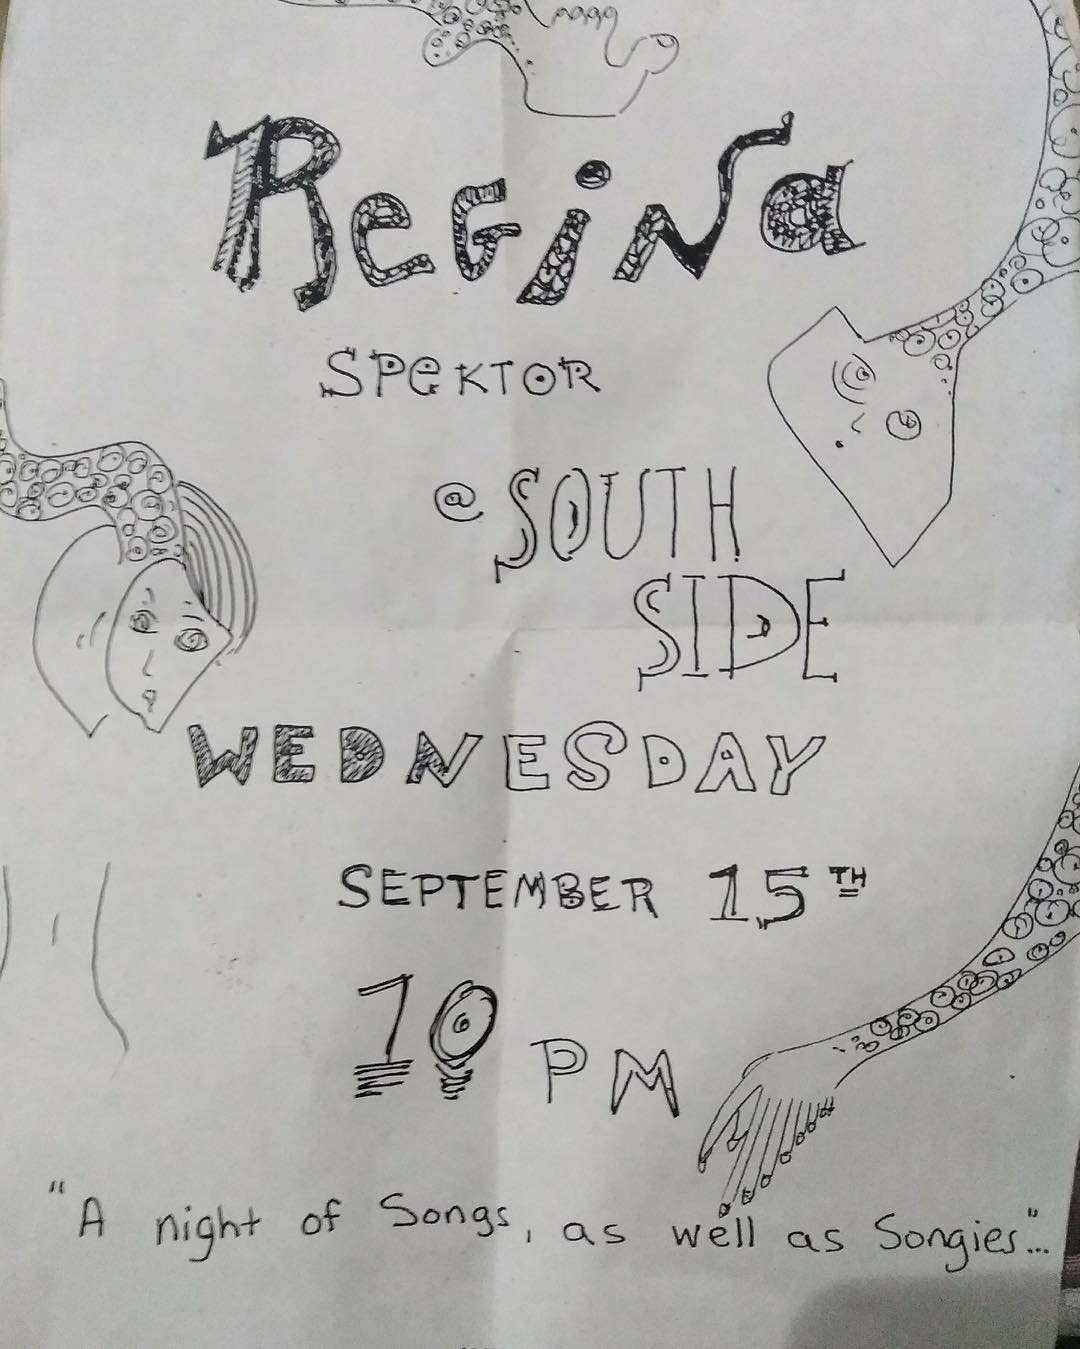 ReGiNa
SPeKTOR
@ SOUTH
SIDE
WEDNESDAY
SEPTEMBER 15TH
10 PM
"A night of Songs, as well as Songies"...